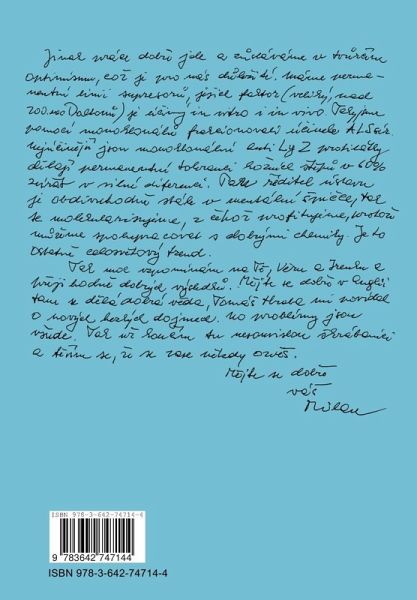 Jinak práce dobře jde a zůstáváme v tvůrčím
optimismu, což je pro nás důležité. Máme perma-
nentní linii supresorů, jejich faktor (veliký, nad
200.000 Daltonů) je účinný in vitro i in vivo. Take jsme
pomocí monoklonálů frakcionovali účinek ALSár.
nejúčinnější jsou monoklonální anti Ly 2 protilátky
dělají permanentní toleranci kožních štěpů v 60%
zvířat v silné diferenci. Pan ředitel ústavu
je obdivuhodně stále v mentální špičce, tak
se molekularisujeme, z čehož profitujeme, protože
můžeme spolupracovat s dobrými chemiky. Je to
ostatně celosvětový trend.
Tak moc vzpomínám na Tě, Věru a Irenku a
přeji hodně dobrých výsledků. Mějte se dobře v Anglii
tam se dělá dobrá věda, Tomáš Hraba mi povídal
o nových hezkých dojmech. No problémy jsou
všude. Tak už končím tu nesouvislou škrábanici
a těším se, že se zase někdy ozveš.
Mějte se dobře
váš
Milan
ISBN 978-3-642-74714-4
9 783642 747144
ISBN 978-3-642-74714-4